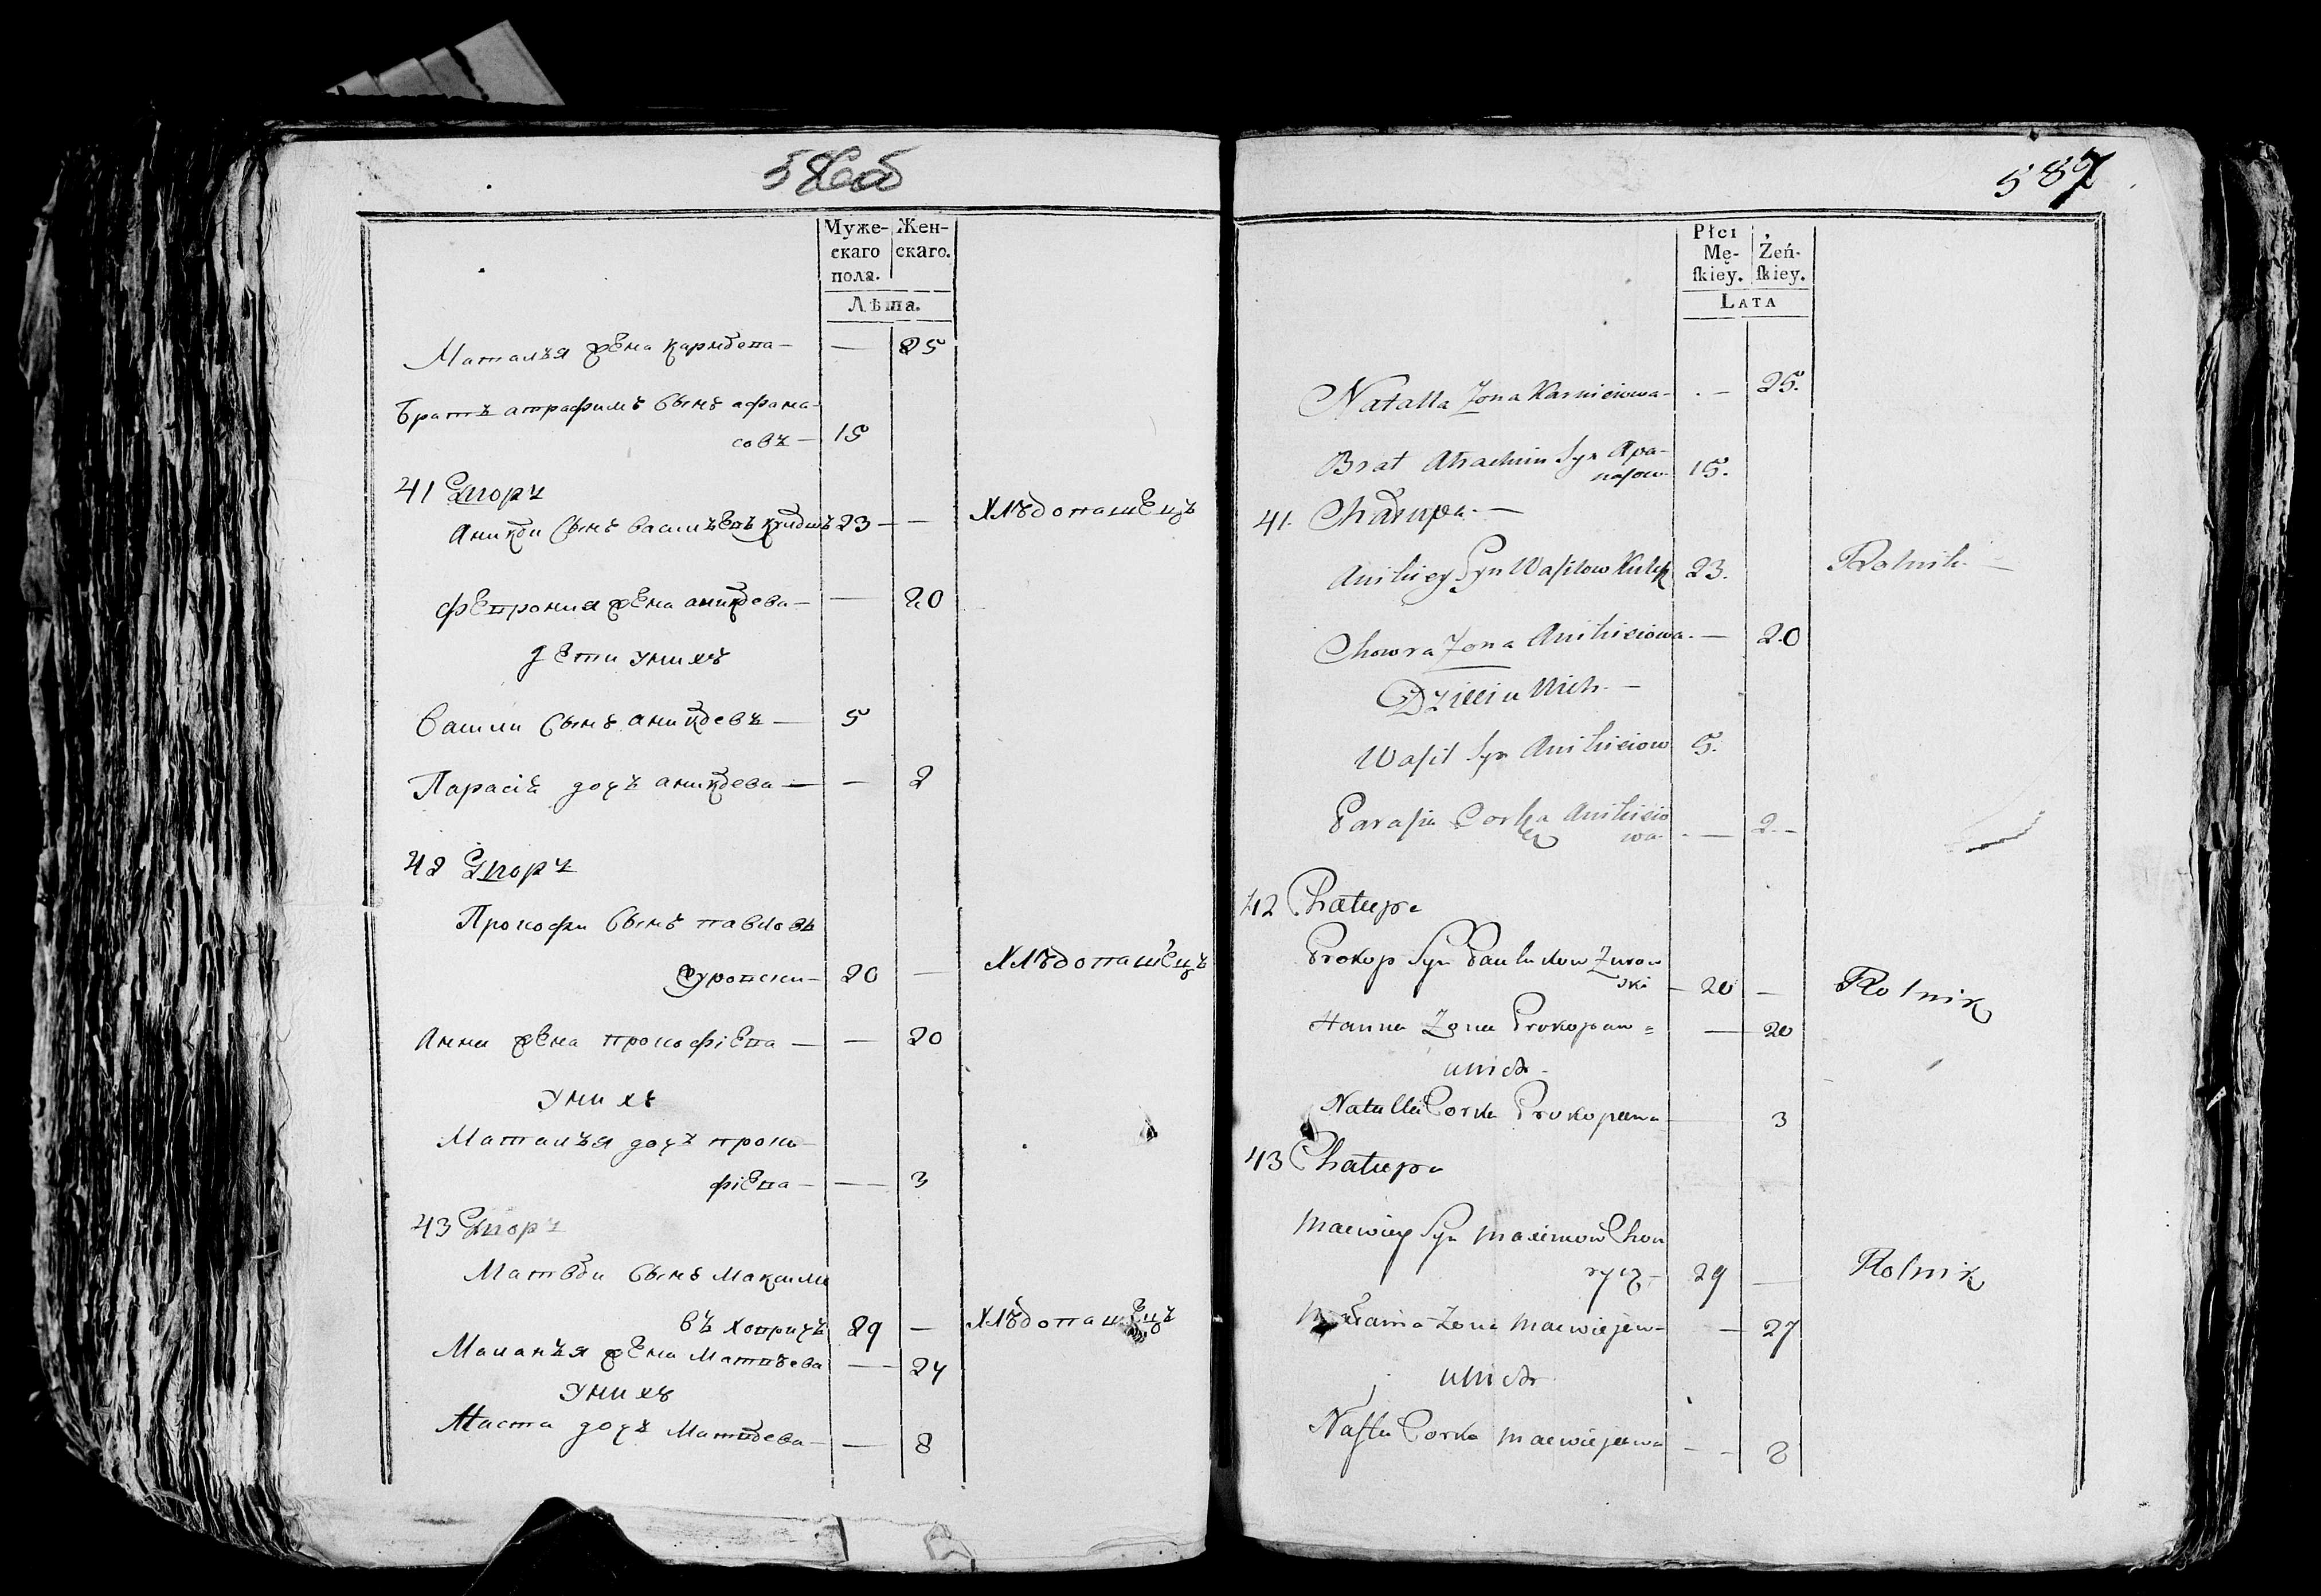 586об
Муже-
скаго
пола.
Жен-
скаго.
Лѣта.
Наталья жена — 25
братъ сынъ афана-
совъ — 15
41 Дворъ
Аникѣи сынъ 23 — — хлѣбопашецъ
жена аникѣева — — 20
дети унихъ
Васили сынъ аникѣевъ — 5
Парасія дочь аникѣева — — 2
42 Дворъ
Прокофи сынъ павловъ
20 — хлѣбопашецъ
Анна жена прокофіева — — 20
унихъ
Наталья дочь проко-
фіева — — 3
43 Дворъ
Матвѣи сынъ Максимо
въ 29 — хлѣбопашецъ
Маланья жена Матвѣева — 27
унихъ
Наста дочь Матвѣева — — 8
587
Płci
Mę-
ſkiey.
Żeń-
ſkiey.
LATA
Natalla Zona — 25.
Brat Syn Apa-
naſow 15.
41. Chałupa. —
Anikiey Syn Waſilow 23. Rolnik. —
Chowra Zona Anikieiowa. — 20
Dzieci u Nich. —
Waſil Syn Anikieiow 5.
Paraſia Corka Anikieio
wa. — 2. —
42 Chałupa
Prokop Syn Zurow
ski — 20 — Rolnik
Hanna Zona Prokopowa — 20
u nich —
Natalla Corka Prokopowa 3
43 Chałupa
Maciwiey Syn Maximow
29 — Rolnik
Zona — 27
u nich
Naſta Corka — — 8